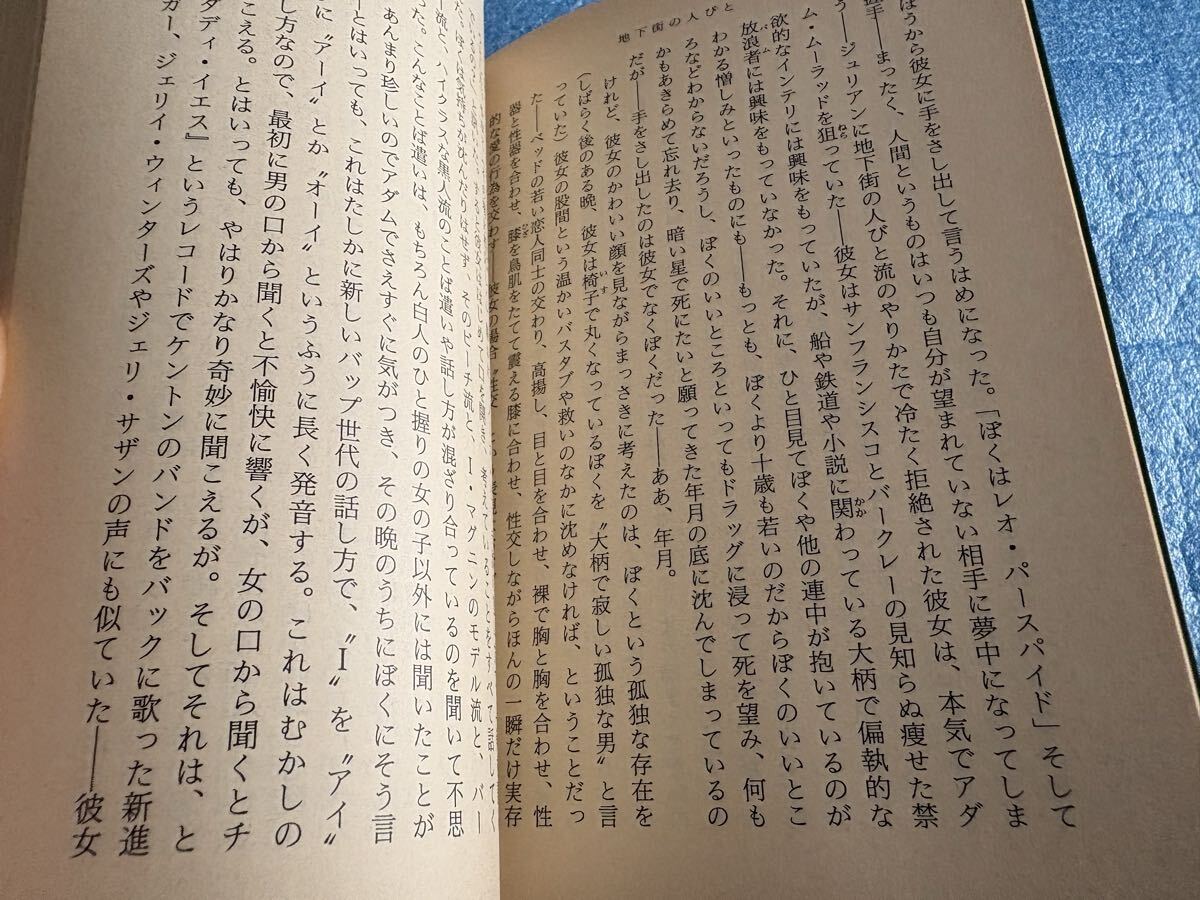 地下街の人びと
ほうから彼女に手をさし出して言うはめになった。「ぼくはレオ・パースパイド」そして
手――まったく、人間というものはいつも自分が望まれていない相手に夢中になってしま
う――ジュリアンに地下街の人びと流のやりかたで冷たく拒絶された彼女は、本気でアダ
ム・ムーラッドを狙っていた――彼女はサンフランシスコとバークレーの見知らぬ痩せた禁
欲的なインテリには興味をもっていたが、船や鉄道や小説に関わっている大柄で偏執的な
放浪者には興味をもっていなかった。それに、ひと目見てぼくや他の連中が抱いているのが
わかる憎しみといったものにも――もっとも、ぼくより十歳も若いのだからぼくのいいとこ
ろなどわからないだろうし、ぼくのいいところといってもドラッグに浸って死を望み、何も
かもあきらめて忘れ去り、暗い星で死にたいと願ってきた年月の底に沈んでしまっているの
だが――手をさし出したのは彼女でなくぼくだった――ああ、年月。
けれど、彼女のかわいい顔を見ながらまっさきに考えたのは、ぼくという孤独な存在を
(しばらく後のある晩、彼女は椅子で丸くなっているぼくを〝大柄で寂しい孤独な男〟と言
っていた)彼女の股間という温かいバスタブや救いのなかに沈めなければ、ということだっ
た――ベッドの若い恋人同士の交わり、高揚し、目と目を合わせ、裸で胸と胸を合わせ、性
器と性器を合わせ、膝を鳥肌をたてて震える膝に合わせ、性交しながらほんの一瞬だけ実存
的な愛の行為を交わす――彼女の場合〝性交
流と、ハイクラスな黒人流のことば遣いや話し方が混ざり合っているのを聞いて不思
った。こんなことば遣いは、もちろん白人のひと握りの女の子以外には聞いたことが
あんまり珍しいのでアダムでさえすぐに気がつき、その晩のうちにぼくにそう言
ーとはいっても、これはたしかに新しいバップ世代の話し方で、〝I〟を〝アイ〟
に〝アーイ〟とか〝オーイ〟というふうに長く発音する。これはむかしの
し方なので、最初に男の口から聞くと不愉快に響くが、女の口から聞くとチ
こえる。とはいっても、やはりかなり奇妙に聞こえるが。そしてそれは、と
ダディ・イエス』というレコードでケントンのバンドをバックに歌った新進
ガー、ジェリイ・ウィンターズやジェリ・サザンの声にも似ていた――彼女